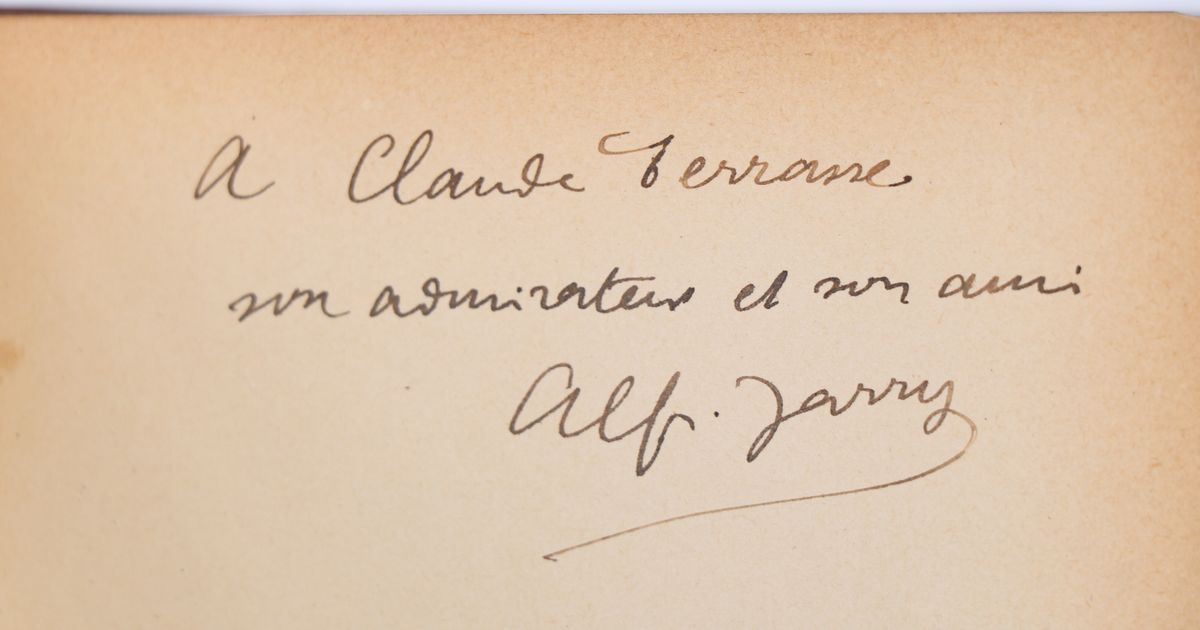 A Claude Terrasse
son admirateur et son ami
Alf. Jarry